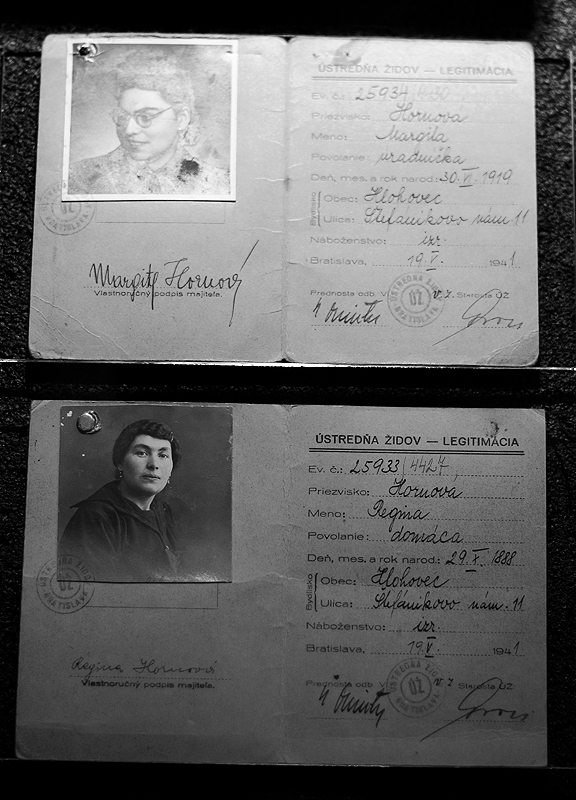 ÚSTREDŇA ŽIDOV — LEGITIMÁCIA
Ev. č.: 25934/4430
Priezvisko: Hornova
Meno: Margita
Povolanie: uradnička
Deň, mes. a rok narod.: 30. VI. 1919
Bydlisko
Obec: Hlohovec
Ulica: Štefanikovo nám 11
Náboženstvo: izr.
Bratislava, 19. V. 1941.
Prednosta odd. V. v. z. Starosta ÚŽ
ÚSTREDŇA ŽIDOV
ÚŽ
BRATISLAVA
Margita Hornová
Vlastnoručný podpis majiteľa.
ÚŽ
BRATISLAVA
ÚSTREDŇA ŽIDOV — LEGITIMÁCIA
Ev. č.: 25933/4427
Priezvisko: Hornova
Meno: Regina
Povolanie: domáca
Deň, mes. a rok narod.: 29. X. 1888
Bydlisko
Obec: Hlohovec
Ulica: Štefánikovo nám. 11
Náboženstvo: izr.
Bratislava, 19. V. 1941
Prednosta odd. v. z. Starosta ÚŽ
ÚSTREDŇA ŽIDOV
ÚŽ
BRATISLAVA
Regina Hornová
Vlastnoručný podpis majiteľa.
ÚŽ
BRATISLAVA